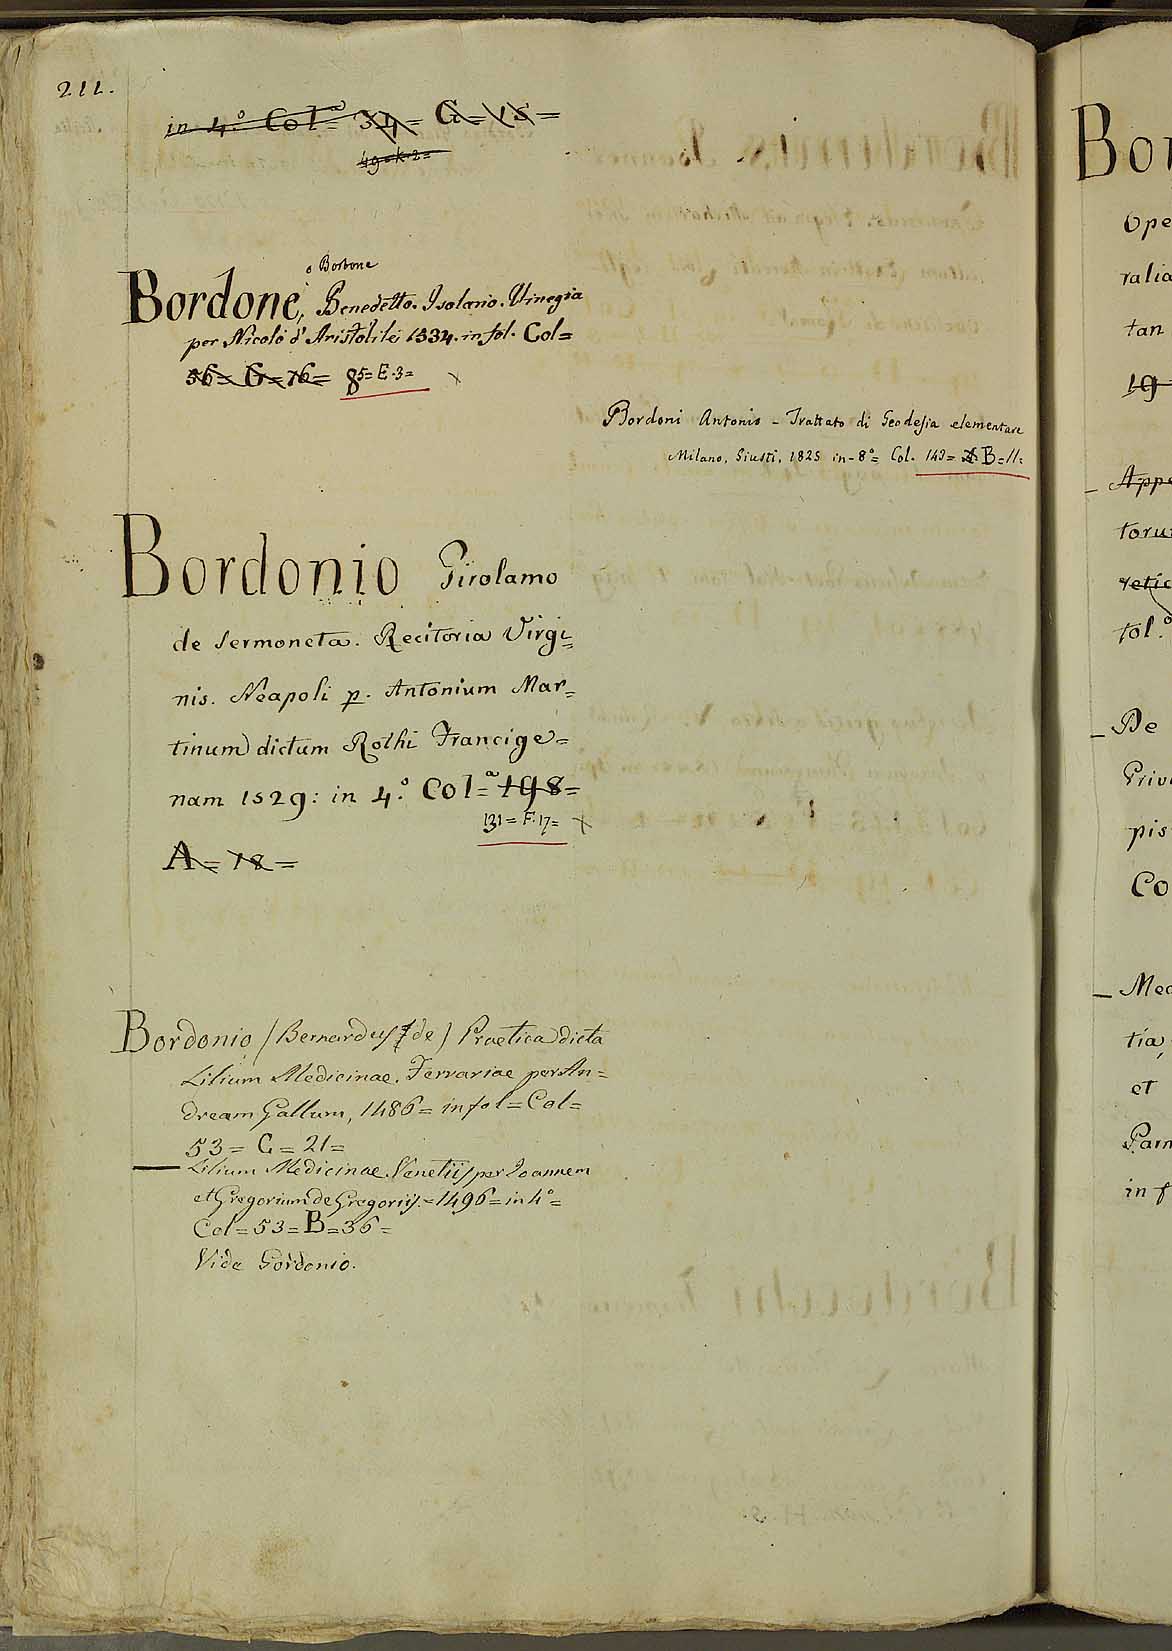 211.
in 4.º Col.ª 34= G= 15=
49=K.2=
o Borbone
Bordone, Benedetto. Isolario. Vinegia
per Nicolò d'Aristotile 1534. in fol. Col=
56= G=16= 85=E.3=
Bordoni Antonio - Trattato di Geodesia elementare
Milano, Giusti, 1825 in-8º= Col. 149= B=11=
Bordonio Girolamo
de Sermoneta. Recitoria Virgi=
nis. Neapoli p. Antonium Mar=
tinum dictum Rothi Francige=
nam 1529: in 4.º Col=ª 198=
131=F.17=
A= 18=
Bordonio (Bernardus de) Practica dicta
Lilium Medicinae. Ferrariae per An=
dream Gallum, 1486= in fol= Col=
53= G= 21=
Lilium Medicinae. Venetiis per Joannem
et Gregorium de Gregoriis.=1496= in 4º=
Col=53=B=36=
Vide Gordonio.
Bor
Ope
ralia
tan
19=
Appe
toru
retic
fol.º
De
Privi
pis
Co
Med
tia,
et
Parm
in f